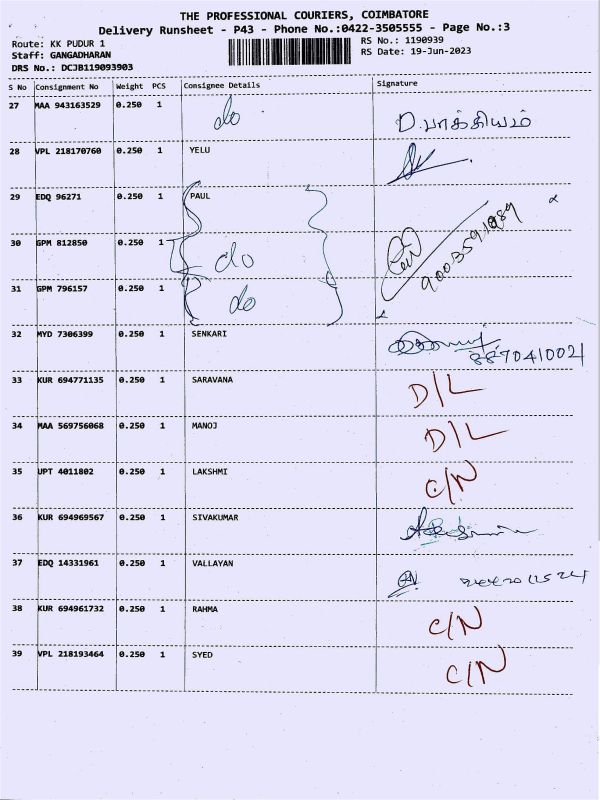 THE PROFESSIONAL COURIERS, COIMBATORE
Delivery Runsheet - P43 - Phone No.:0422-3505555 - Page No.:3
Route: KK PUDUR 1 RS No.: 1190939
Staff: GANGADHARAN RS Date: 19-Jun-2023
DRS No.: DCJB119093903
S No Consignment No Weight PCS Consignee Details Signature
27 MAA 943163529 0.250 1 do D.பாக்கியம்
28 VPL 218170760 0.250 1 YELU
29 EDQ 96271 0.250 1 PAUL
30 GPM 812850 0.250 1 do 9003591989
31 GPM 796157 0.250 1 do
32 MYD 7306399 0.250 1 SENKARI 8870410021
33 KUR 694771135 0.250 1 SARAVANA D/L
34 MAA 569756068 0.250 1 MANOJ D/L
35 UPT 4011802 0.250 1 LAKSHMI C/N
36 KUR 694969567 0.250 1 SIVAKUMAR
37 EDQ 14331961 0.250 1 VALLAYAN
38 KUR 694961732 0.250 1 RAHMA C/N
39 VPL 218193464 0.250 1 SYED C/N